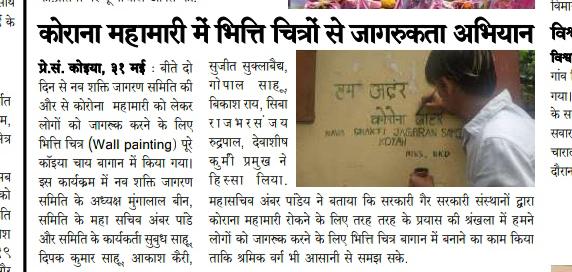 कोराना महामारी में भित्ति चित्रों से जागरुकता अभियान
प्रे.सं. कोइया, ३१ मई : बीते दो
दिन से नव शक्ति जागरण समिति की
और से कोरोना महामारी को लेकर
लोगों को जागरुक करने के लिए
भित्ति चित्र (Wall painting) पूरे
कॉइया चाय बागान में किया गया।
इस कार्यक्रम में नव शक्ति जागरण
समिति के अध्यक्ष मुंगालाल बीन,
समिति के महा सचिव अंबर पांडे
और समिति के कार्यकर्ता सुबुध साहू,
दिपक कुमार साहू, आकाश कैरी,
सुजीत सुक्लाबैद्य,
गोपाल साहू,
बिकाश राय, सिबा
राजभर संजय
रुद्रपाल, देवाशीष
कुर्मी प्रमुख ने
हिस्सा लिया।
महासचिव अंबर पांडेय ने बताया कि सरकारी गैर सरकारी संस्थानों द्वारा
कोराना महामारी रोकने के लिए तरह तरह के प्रयास की श्रंखला में हमने
लोगों को जागरुक करने के लिए भित्ति चित्र बागान में बनाने का काम किया
ताकि श्रमिक वर्ग भी आसानी से समझ सके.
हम अंदर
कोरोना बाहर
NAVA SHAKTI JAGARAN SAMI
KOYAH